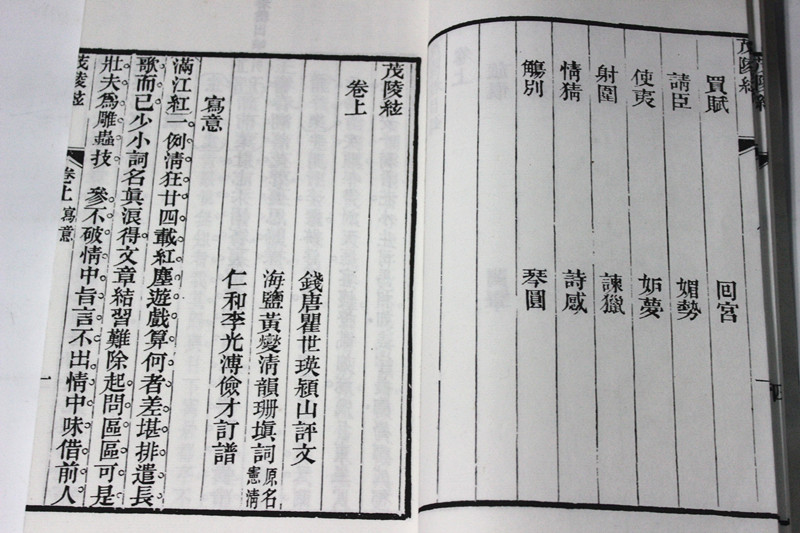 茂陵絃
買賦 回宮
請臣 媚勢
使夷 妬夢
射圍 諫獵
情猜 詩感
觴別 琴圓
茂陵絃
卷上
錢唐瞿世瑛穎山評文
海鹽黃燮清韻珊塡詞 原名憲淸
仁和李光溥儉才訂譜
寫意
滿江紅一例淸狂廿四載紅塵遊戲算何者差堪排遣長
歌而已少小詞名眞浪得文章結習難除起問區區可是
壯夫爲雕蟲技 參不破情中旨言不出情中味借前人
茂陵絃 卷上 寫意 一